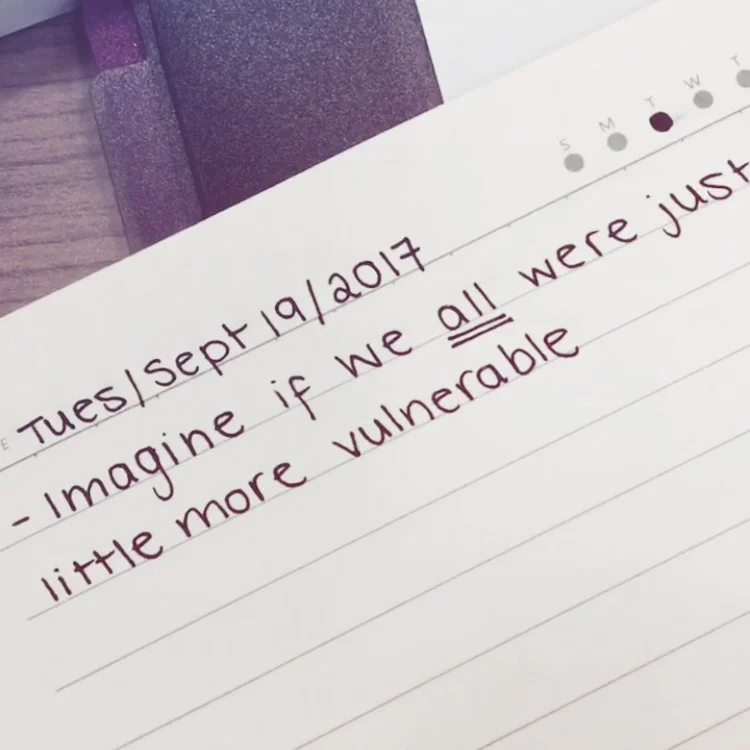 S M T W T
E Tues/Sept 19/2017
- Imagine if we all were just
little more vulnerable